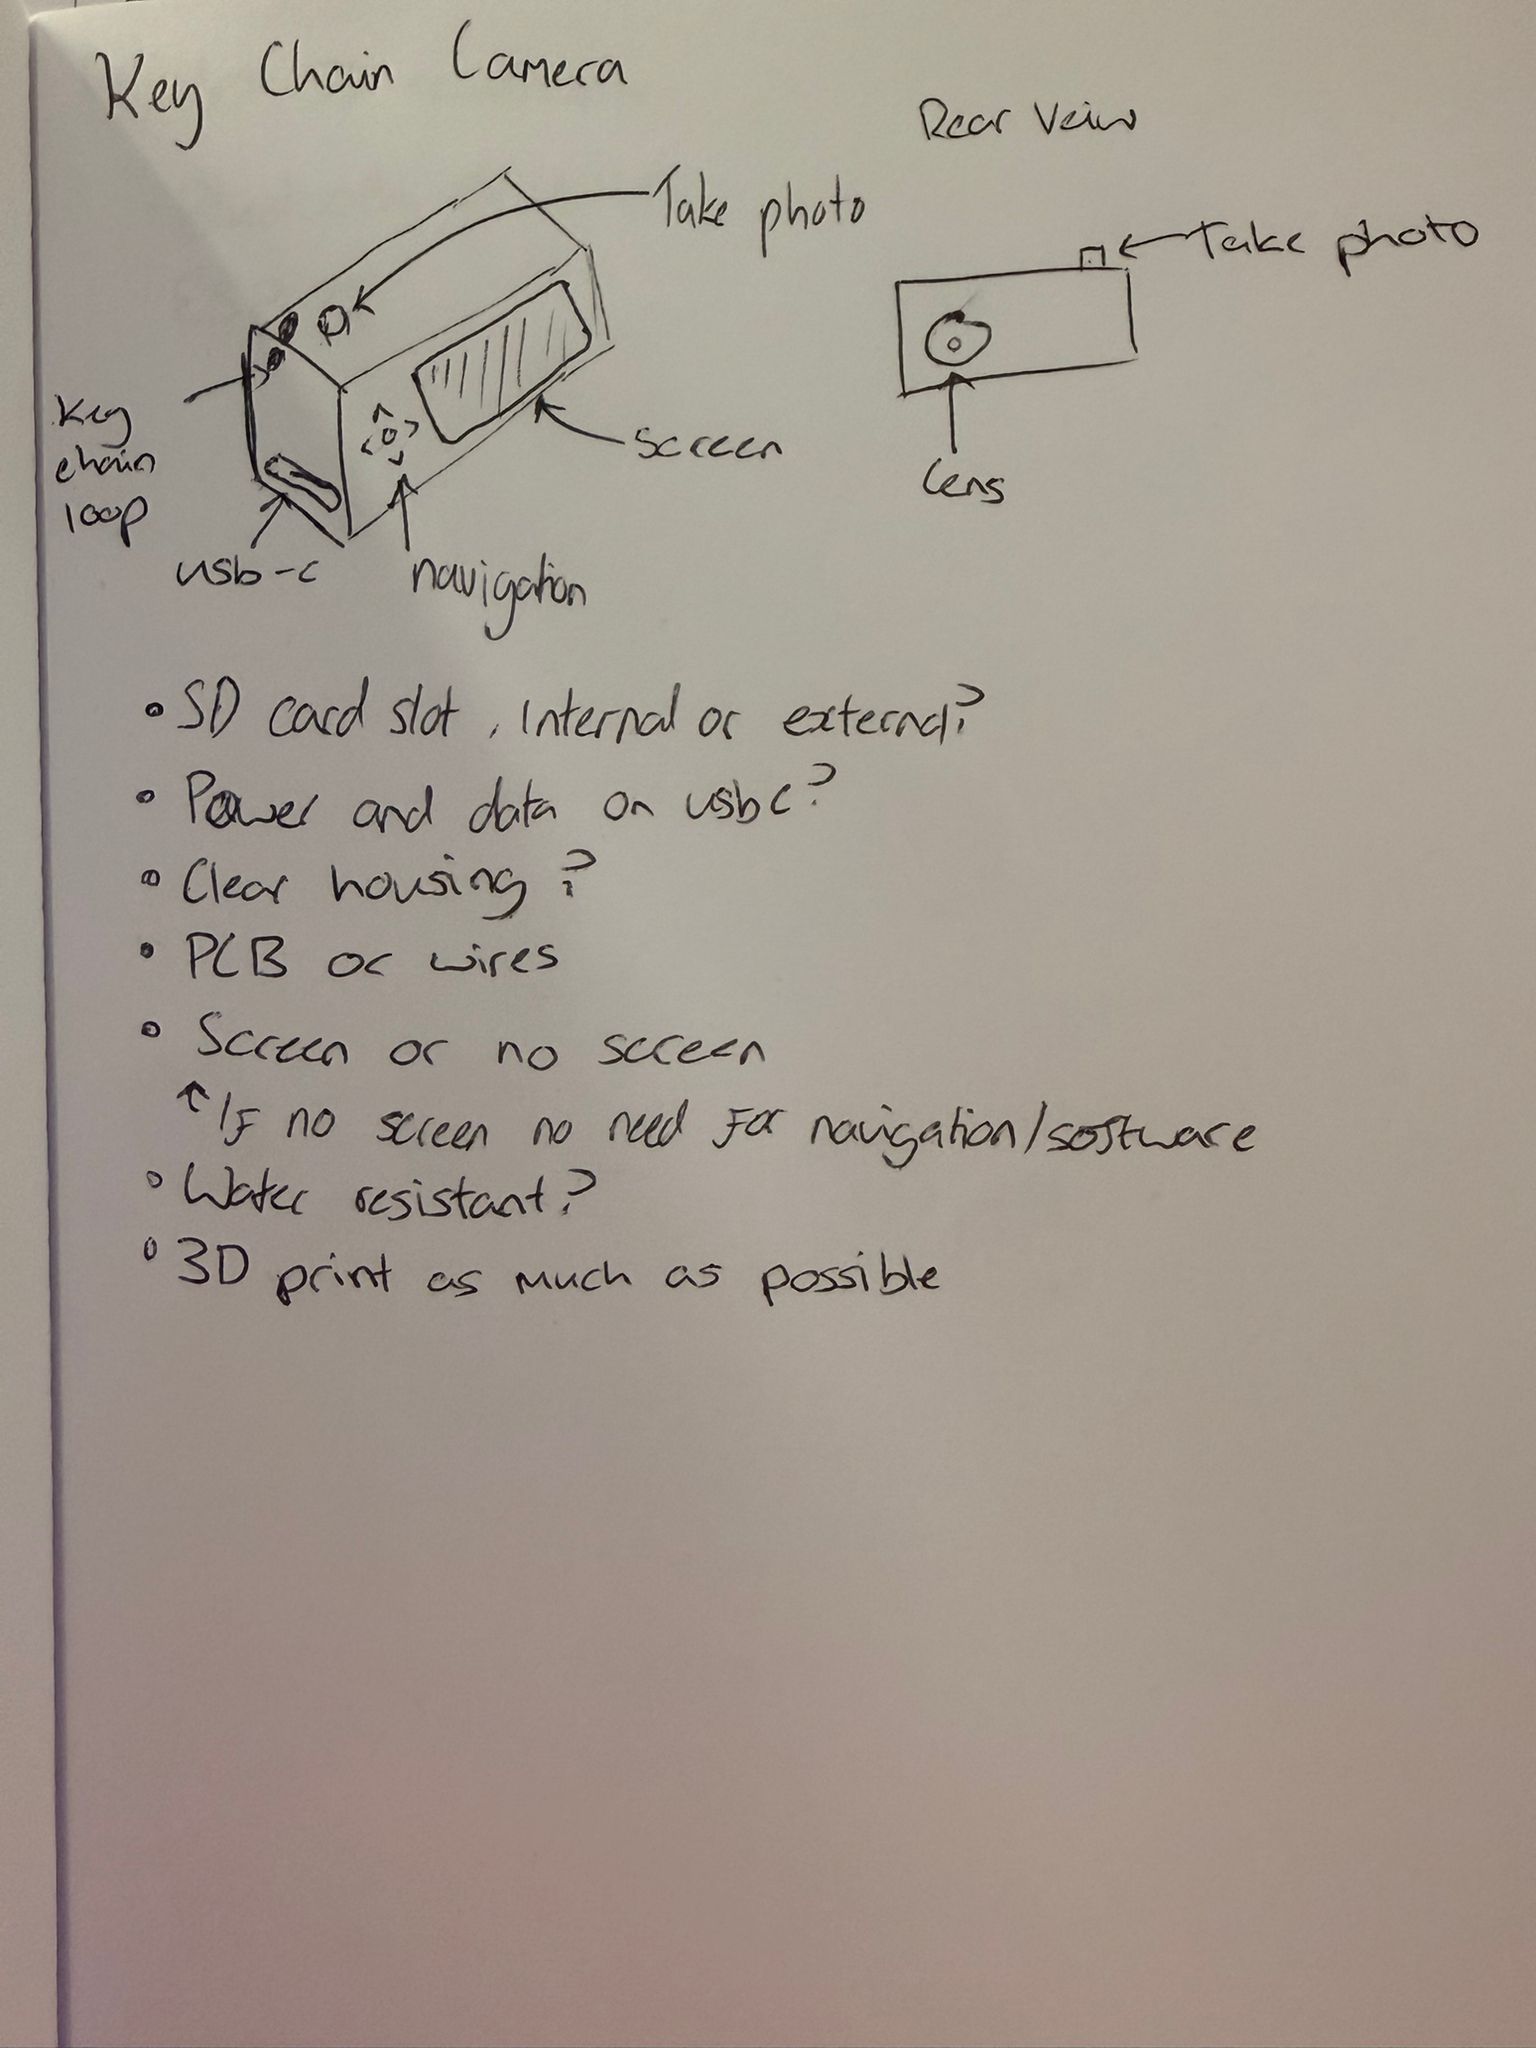 Key Chain Camera
Rear Veiw
Take photo
Take photo
Key
chain
loop
screen
lens
usb-c
navigation
• SD card slot, Internal or external?
• Power and data on usbc?
• Clear housing?
• PCB or wires
• Screen or no screen
↑ If no screen no need for navigation/software
• Water resistant?
• 3D print as much as possible